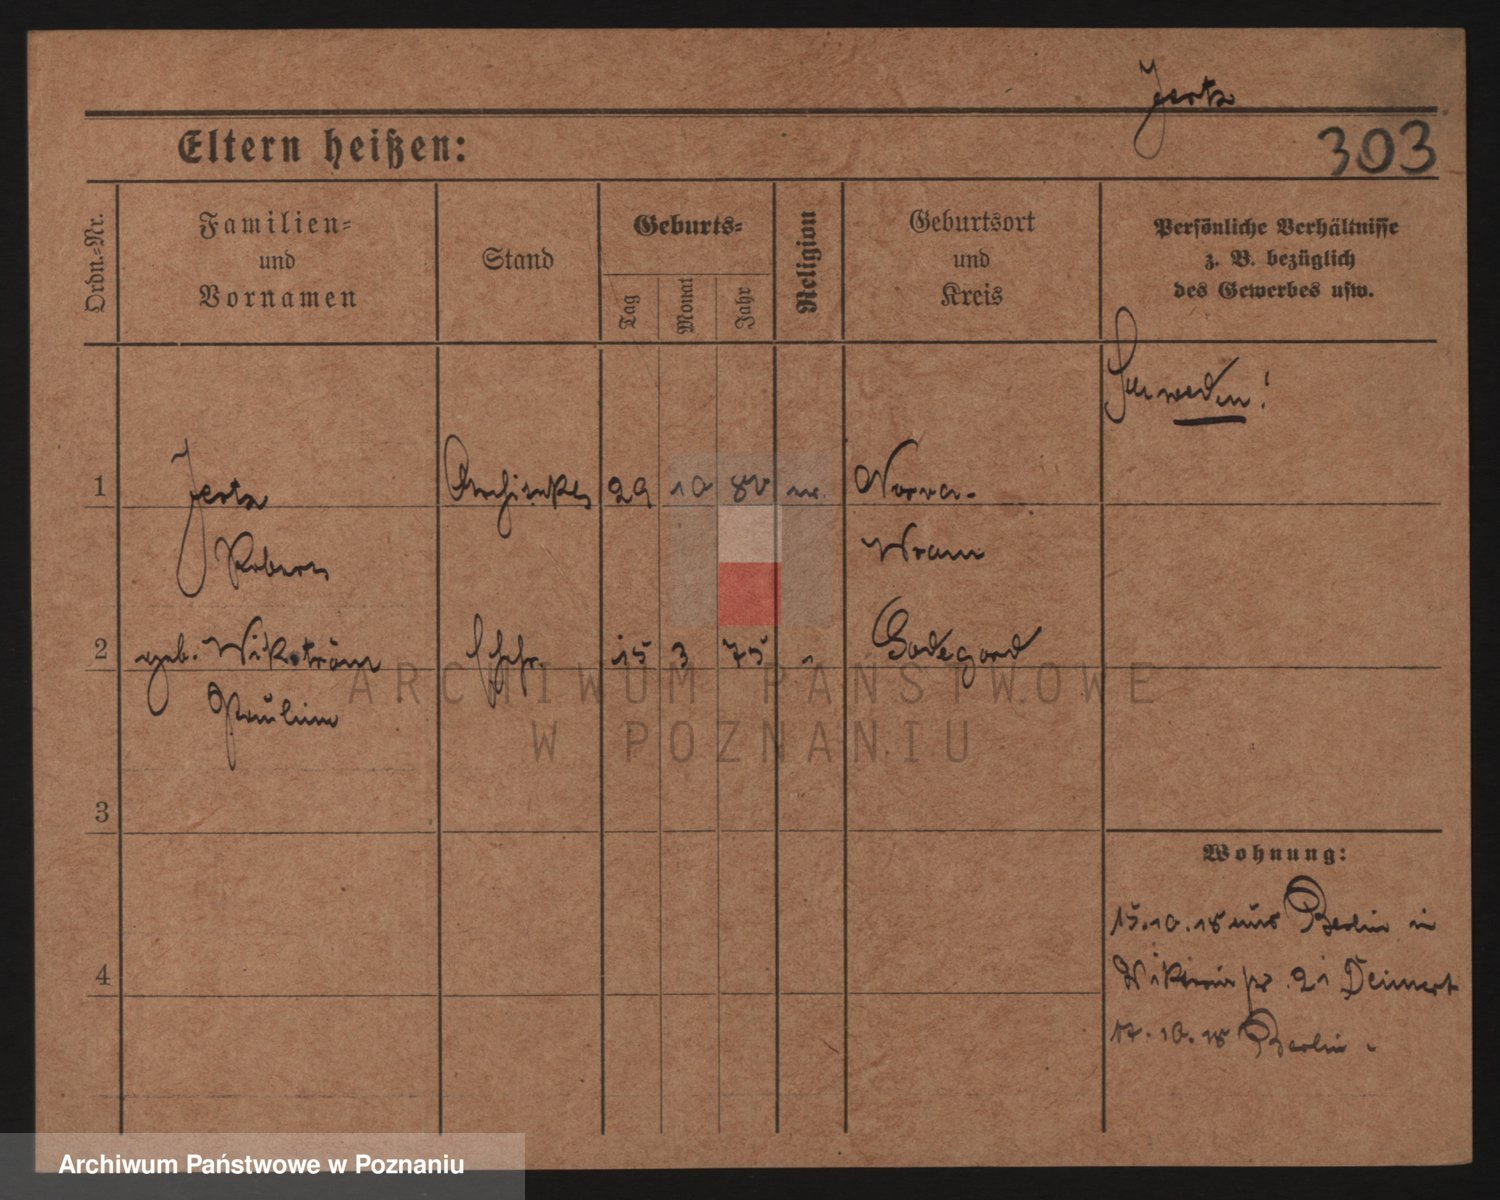 Jertz
303
Eltern heißen:
Ordn.-Nr.
Familien-
und
Vornamen
Stand
Geburts-
Tag
Monat
Jahr
Religion
Geburtsort
und
Kreis
Persönliche Verhältnisse
z. B. bezüglich
des Gewerbes usw.
Schweden!
1
Jertz
Robert
Architekt
29 10 80
Norra-
Wram
2
geb. Wikström
Paulina
Ehfr.
15 3 75
"
Godegard
3
4
Wohnung:
15.10.18 aus Berlin in
Viktoriastr. 21
17.10.18 Berlin.
ARCHIWUM PAŃSTWOWE
W POZNANIU
Archiwum Państwowe w Poznaniu